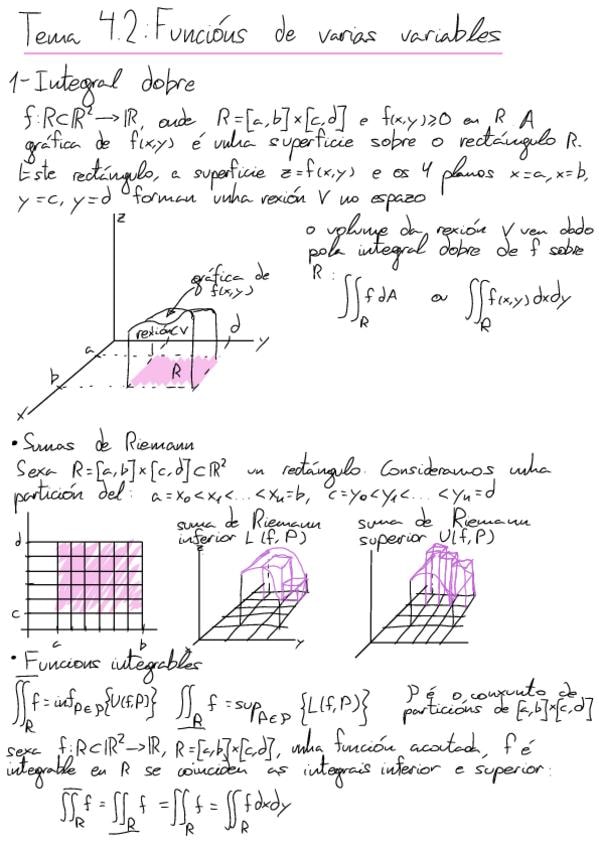 Tema 4.2: Funcións de varias variables
1- Integral dobre
f: R⊂ℝ²→ℝ, onde R=[a,b]×[c,d] e f(x,y)≥0 en R. A
gráfica de f(x,y) é unha superficie sobre o rectángulo R.
Este rectángulo, a superficie z=f(x,y) e os 4 planos x=a, x=b,
y=c, y=d forman unha rexión V no espazo
z
o volume da rexión V ven dado
pola integral dobre de f sobre
R:
∬_R f dA ou ∬_R f(x,y) dxdy
gráfica de
f(x,y)
rexión V
d
y
a
b
R
x
• Sumas de Riemann
Sexa R=[a,b]×[c,d]⊂ℝ² un rectángulo. Consideramos unha
partición del: a=x₀<x₁<...<xₙ=b, c=y₀<y₁<...<yₙ=d
suma de Riemann
inferior L(f,P)
suma de Riemann
superior U(f,P)
d
c
a b
z
y
x
• Funcions integrables
‾∬_R f = inf_{P∈P}{U(f,P)} _∬_R f = sup_{P∈P}{L(f,P)}
P é o conxunto de
particións de [a,b]×[c,d]
sexa f: R⊂ℝ²→ℝ, R=[a,b]×[c,d], unha función acoutada, f é
integrable en R se coinciden as integrais inferior e superior:
‾∬_R f = _∬_R f = ∬_R f = ∬_R f dxdy